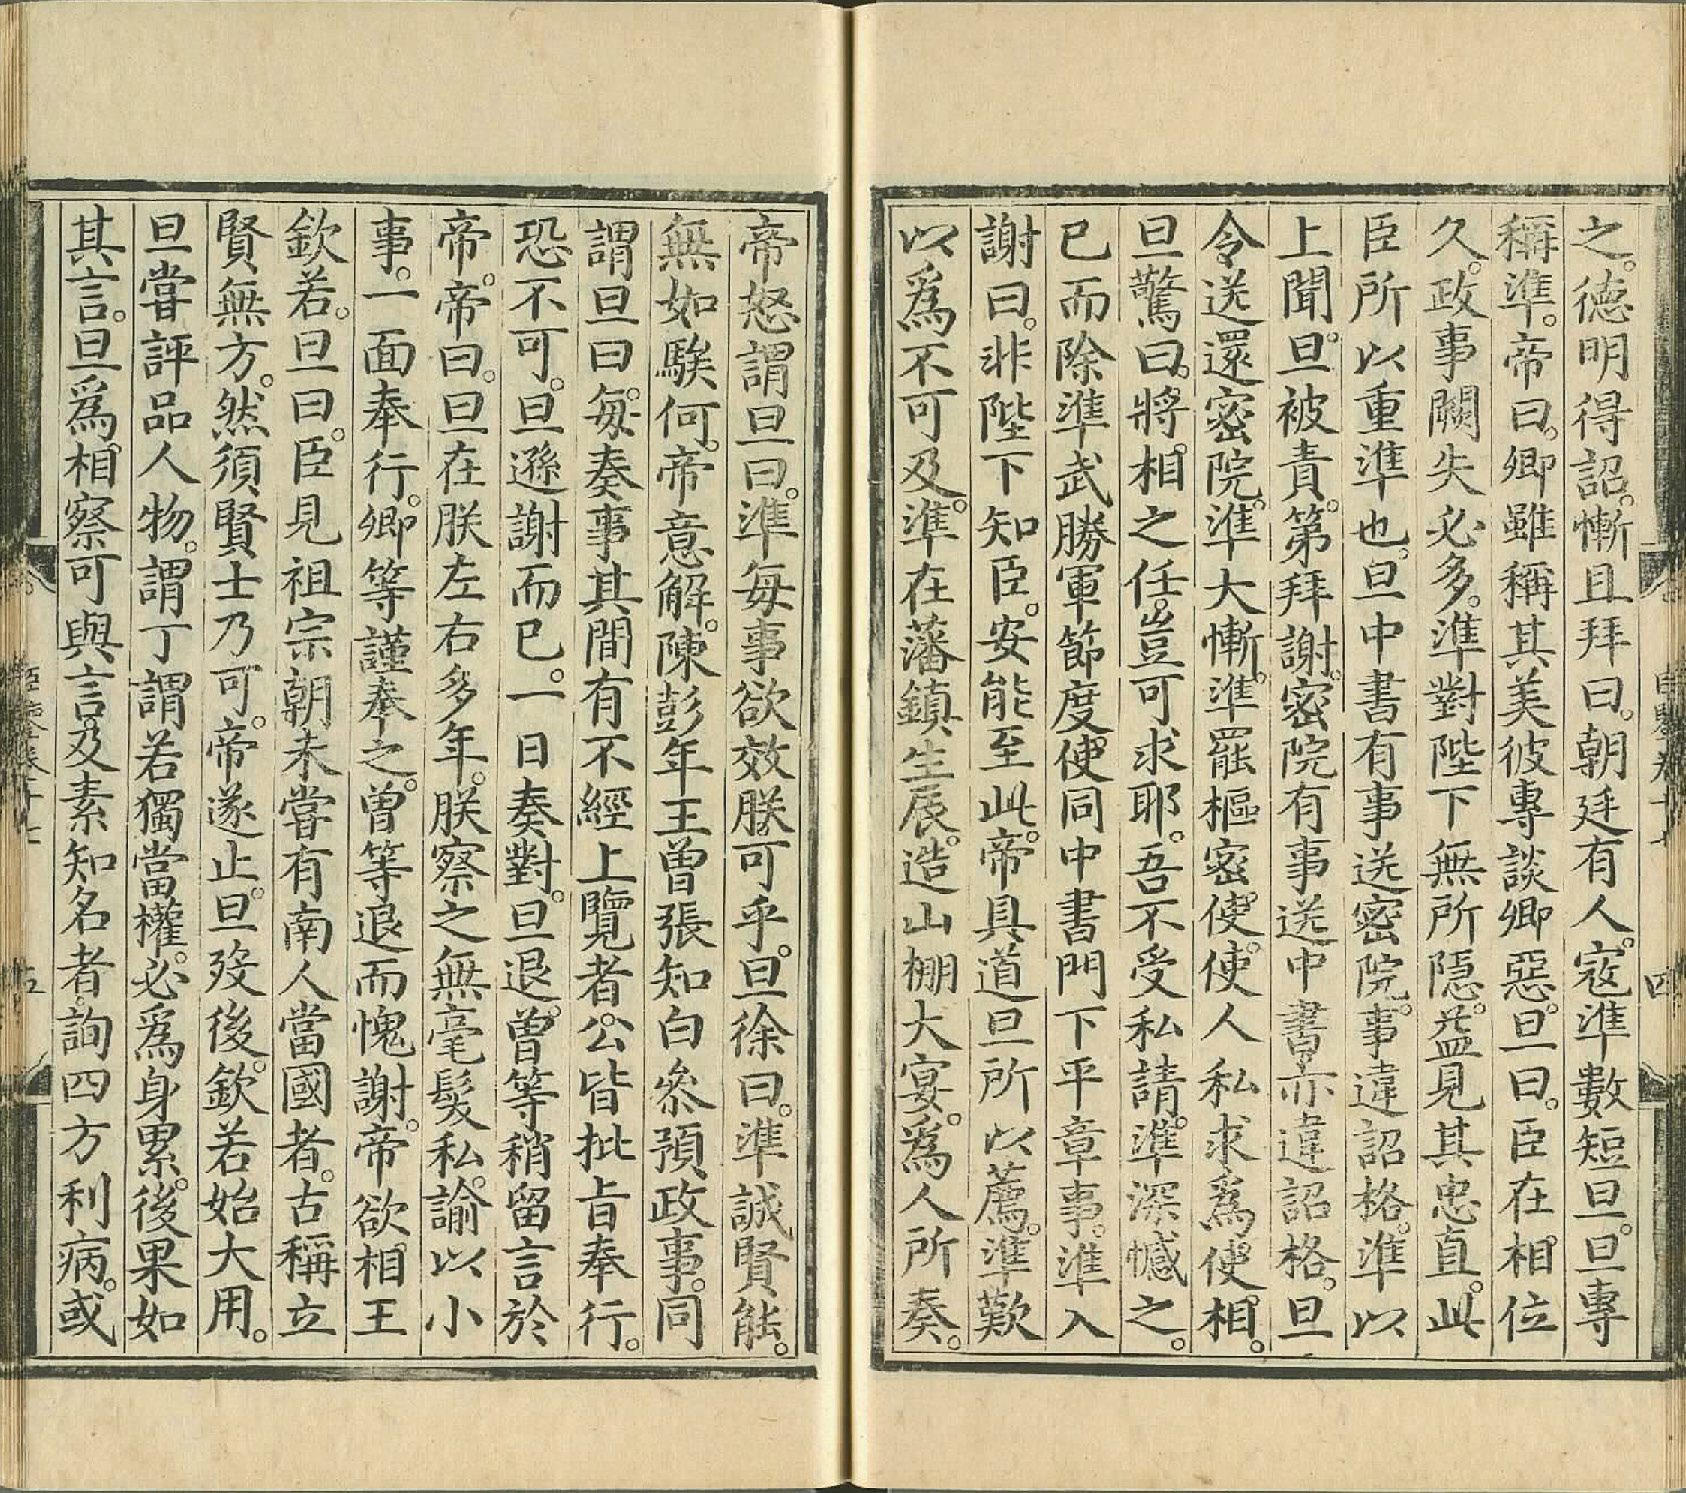 之。德明得詔。慚且拜曰。朝廷有人。寇準數短旦。旦專
稱準。帝曰。卿雖稱其美彼專談卿惡。旦曰。臣在相位
久。政事闕失必多。準對陛下無所隱。益見其忠直。此
臣所以重準也。旦中書有事送密院。事違詔格。準以
上聞。旦被責。第拜謝。密院有事送中書亦違詔格。旦
令送還密院。準大慚。準罷樞密使。使人私求為使相。
旦驚曰。將相之任。豈可求耶。吾不受私請。準深憾之。
已而除準武勝軍節度使同中書門下平章事。準入
謝曰。非陛下知臣。安能至此。帝具道旦所以薦。準歎
以為不可及。準在藩鎮生辰。造山棚大宴。為人所奏。
帝怒謂旦曰。準每事欲效朕可乎。旦徐曰。準誠賢能。
無如騃何。帝意解。陳彭年王曾張知白參預政事。同
謂旦曰。每奏事其間有不經上覽者。公皆批旨奉行。
恐不可。旦遜謝而已。一日奏對。旦退。曾等稍留言於
帝。帝曰。旦在朕左右多年。朕察之無毫髮私。諭以小
事。一面奉行。卿等謹奉之。曾等退而愧謝。帝欲相王
欽若。旦曰。臣見祖宗朝未嘗有南人當國者。古稱立
賢無方。然須賢士乃可。帝遂止。旦歿後。欽若始大用。
旦嘗評品人物。謂丁謂若獨當權。必為身累。後果如
其言。旦為相。察可與言及素知名者。詢四方利病。或